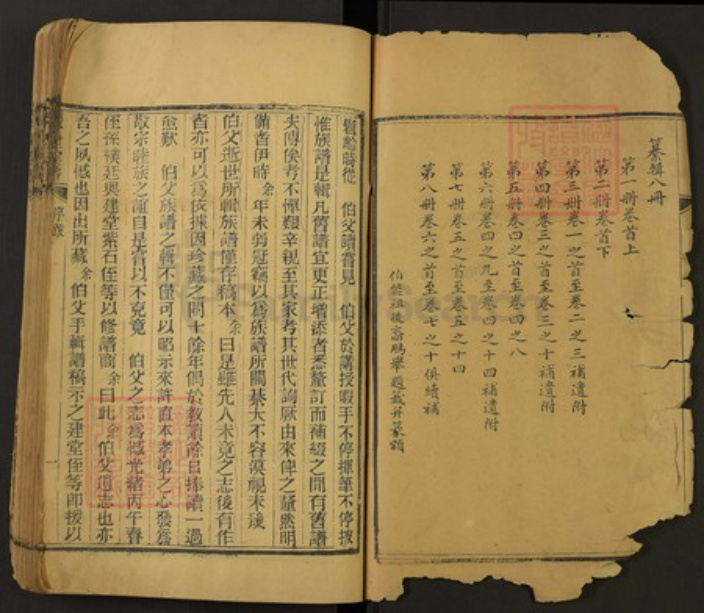 纂輯八冊
第一册卷首上
第二册卷首下
第三册卷一之首至卷二之三補遺附
第四册卷三之首至卷三之十補遺附
第五册卷四之首至卷四之八
第六册卷四之九至卷四之十四補遺附
第七册卷五之首至卷五之十四
第八册卷六之首至卷七之十俱續補
齠齡時從 伯父讀嘗見 伯父於講授暇手不停揮筆不停披
惟族譜是輯凡舊譜宜更正增添者悉釐訂而補綴之間有舊譜
失傳俟考不憚艱辛親至其家考其世代詢厥由來俾之釐然明
備者伊時余年未弱冠竊以為族譜所關綦大不容漠視未幾
伯父逝世所輯族譜僅存稿本余曰是雖先人未竟之志後有作
者亦可以為依據因珍藏之閱十餘年偶於教讀餘日捧讀一過
愈歎 伯父族譜之輯不僅可以昭示來許直本孝弟之心發為
敬宗睦族之誼自是嘗以不克竟 伯父之志為憾光緒丙午春
侄孫漢廷與建堂紫石侄等以修譜商余曰此余伯父遺志也亦
吾之夙憾也因出所藏余伯父手輯譜稿示之建堂侄等即援以
序
一